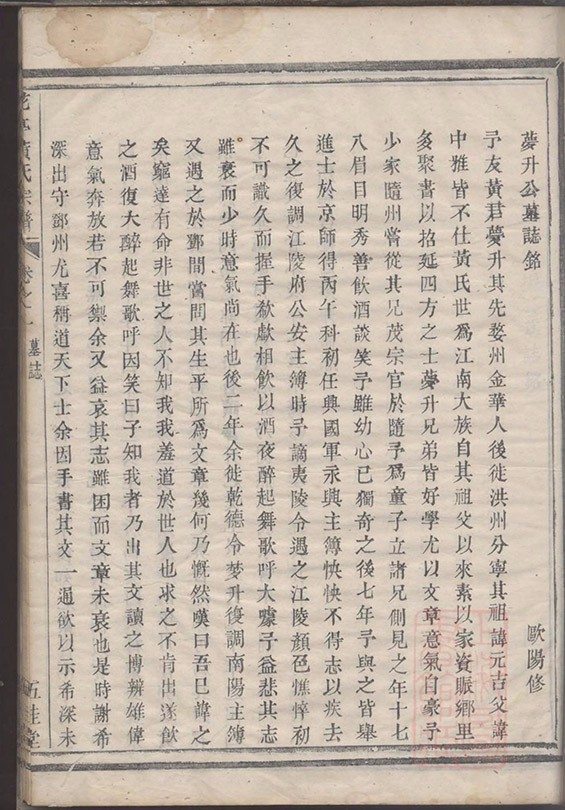 夢升公墓誌銘
歐陽修
予友黃君夢升其先婺州金華人後徙洪州分寧其祖諱元吉父諱
中雅皆不仕黃氏世爲江南大族自其祖父以來素以家資賑鄉里
多聚書以招延四方之士夢升兄弟皆好學尤以文章意氣自豪予
少家隨州嘗從其兄茂宗官於隨予爲童子立諸兄側見之年十七
八眉目明秀善飲酒談笑予雖幼心已獨奇之後七年予與之皆舉
進士於京師得丙午科初任興國軍永興主簿怏怏不得志以疾去
久之復調江陵府公安主簿時予謫夷陵令遇之江陵顏色憔悴初
不可識久而握手欷歔相飲以酒夜醉起舞歌呼大噱予益悲其志
雖衰而少時意氣尚在也後二年余徙乾德令梦升復調南陽主簿
又遇之於鄧間嘗問其生平所爲文章幾何乃慨然嘆曰吾已諱之
矣窮達有命非世之人不知我我羞道於世人也求之不肯出遂飲
之酒復大醉起舞歌呼因笑曰子知我者乃出其文讀之博辨雄偉
意氣奔放若不可禦余又益哀其志雖困而文章未衰也是時謝希
深出守鄧州尤喜稱道天下士余因手書其文一通欲以示希深未
黃氏宗譜
卷之一
墓誌
五桂堂